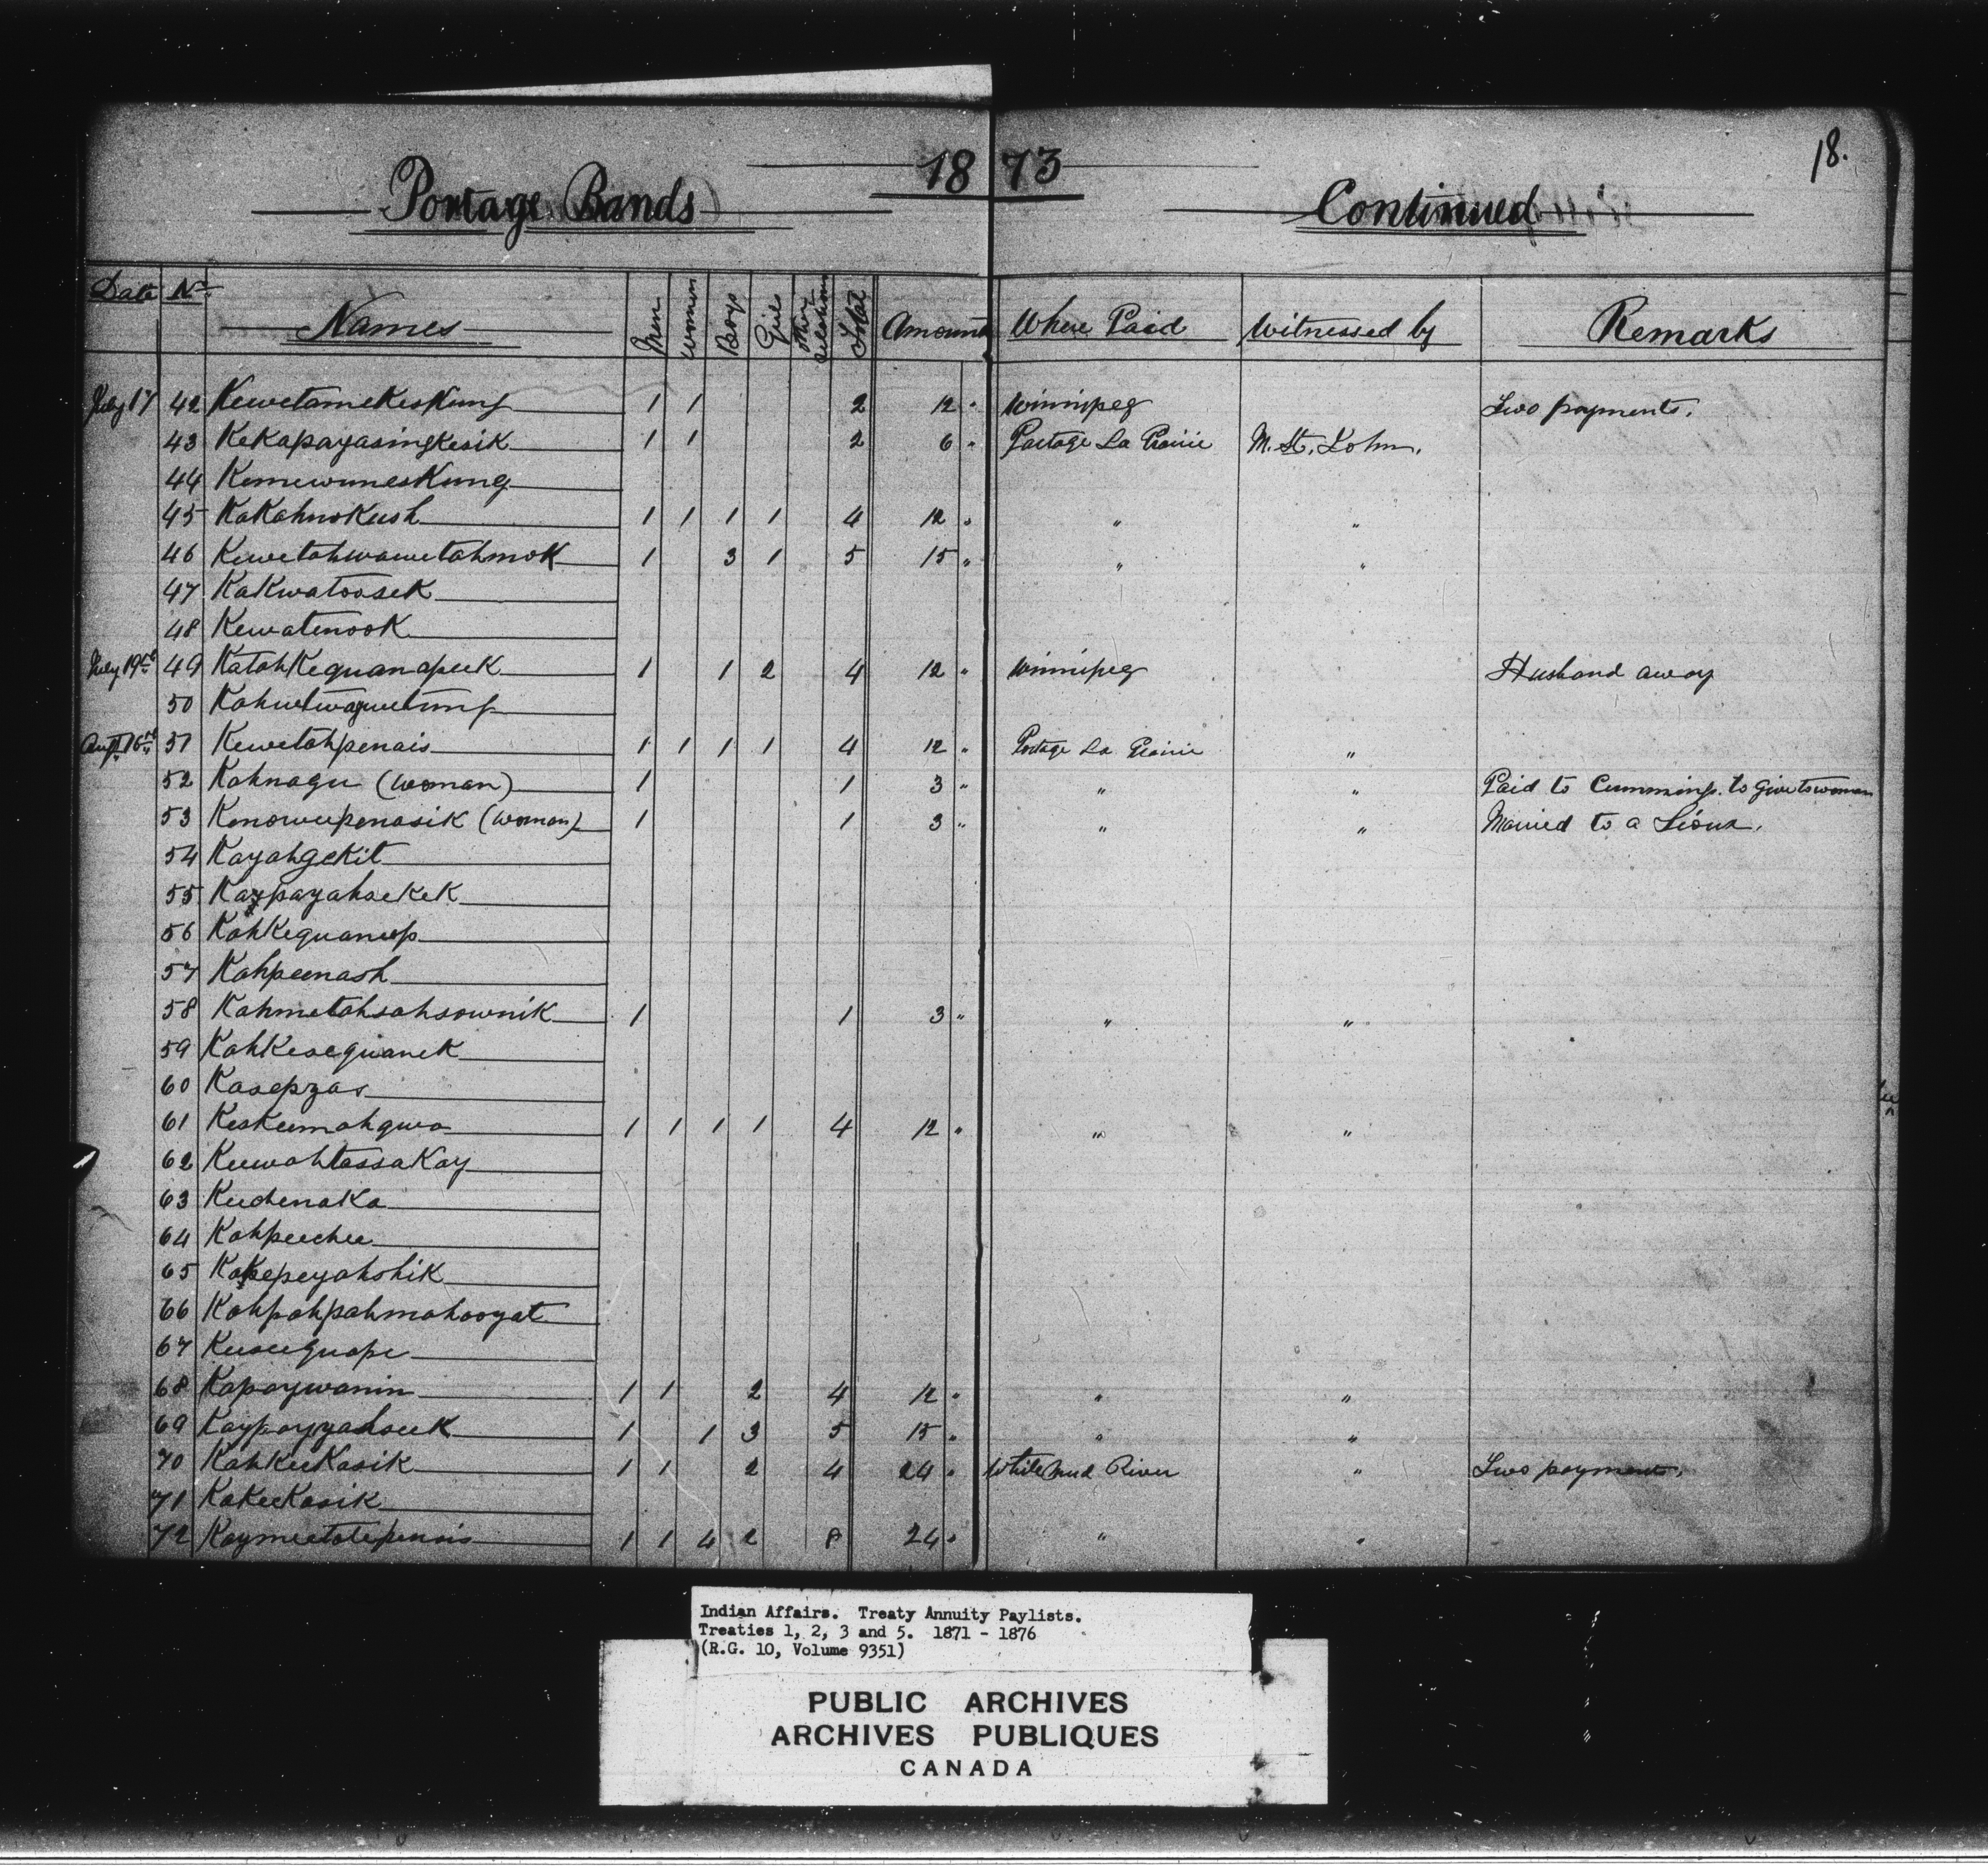 18.
1873
Portage Bands Continued
Date No. Names Men Women Boys Girls Other Relations Total Amount Where Paid Witnessed by Remarks
July 17 42 KewetameKesKung 1 1 2 12 " Winnipeg Two payments.
43 KeKapayasingKesik 1 1 2 6 " Portage La Prairie M. St. John.
44 KemewunesKung
45 KaKahnoKush 1 1 1 1 4 12 " " "
46 KewetahwawetahmoK 1 3 1 5 15 " " "
47 KaKwatooseK
48 KewatenooK
July 19th 49 KatahKequanapeeK 1 1 2 4 12 " Winnipeg Husband away
50
Augt. 16th 51 Kewetahpenais 1 1 1 1 4 12 " Portage La Prairie "
52 Kahnagu (woman) 1 1 3 " " " Paid to Cummings. to give to woman
53 Kenoweepenasik (woman) 1 1 3 " " " Married to a Sioux.
54 KayahgeKit
55 KaypayahseKeK
56 KahKequaneep
57 Kahpeenash
58 Kahmetahsahsownik 1 1 3 " " "
59 KahKesequaneK
60 Kasepzas
61 KesKeemahqwa 1 1 1 1 4 12 " " "
62 KeewahtassaKay
63 KeechenaKa
64 Kahpeechee
65 Kakepeyahshik
66 Kahpahpahmahooyat
67 Keeseequape
68 Kapaywanin 1 1 2 4 12 " " "
69 KaypayyahseeK 1 1 3 5 15 " " "
70 KahKeeKasik 1 1 2 4 24 " White Mud River " Two payments.
71 KaKeeKasik
72 Kaymeetatepenais 1 1 4 2 8 24 " " "
Indian Affairs. Treaty Annuity Paylists.
Treaties 1, 2, 3 and 5. 1871 - 1876
(R.G. 10, Volume 9351)
PUBLIC ARCHIVES
ARCHIVES PUBLIQUES
CANADA